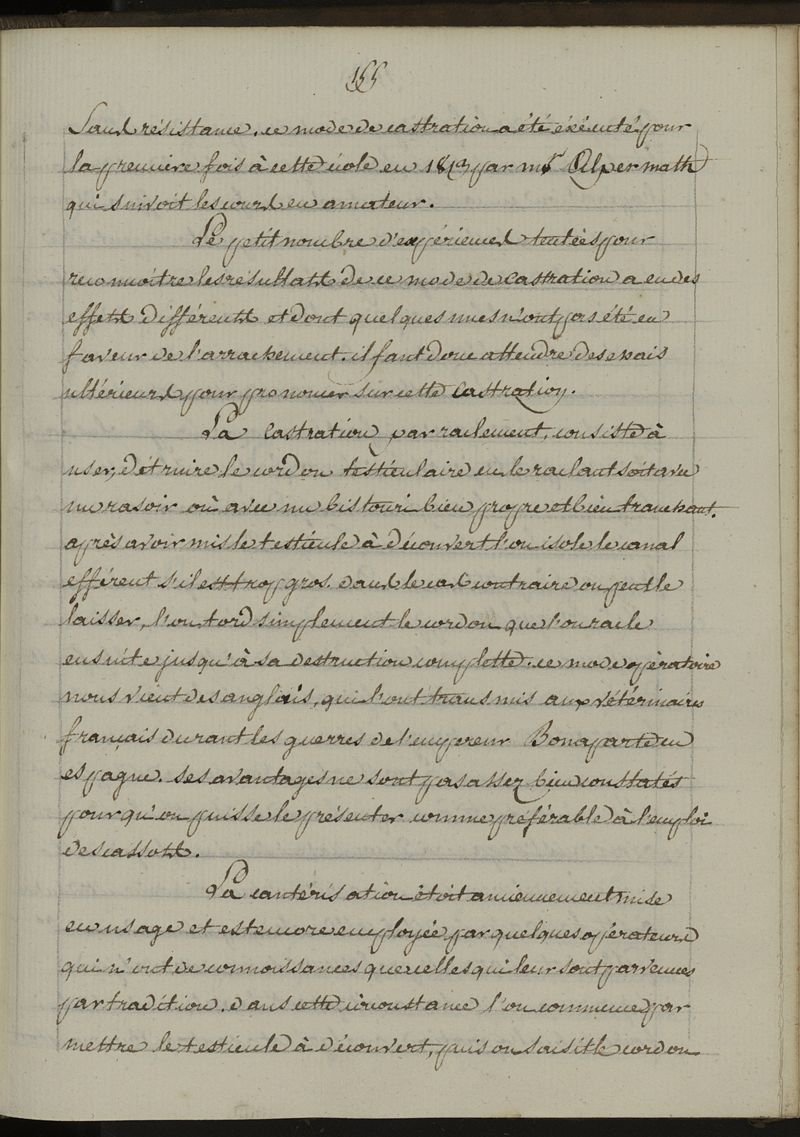 155
Sans résistance. ce mode de castration a été éxécuté pour
la premiere fois à cette école en 1813 par mr Alpermath
qui suivoit les cours en amateur.
Le petit nombre d'expériences tentées pour
reconnoitre les résultats de ce mode de castration a eu des
effets différents et dont quelques unes n'ont pas été en
faveur de l'arrachement. il faut donc attendre des essais
ultérieurs pour prononcer sur cette Castration.
La Castration par raclement, consiste à
user, détruire le cordon testiculaire en le raclant soit avec
un rasoir où avec un bistouri bien propre et bien tranchant.
après avoir mis le testicule à découvert l'on isole le canal
efférent s'il est trop gros. dans le cas contraire on peut le
laisser, l'on tord simplement le cordon que l'on racle
ensuite jusqu'à sa destruction complette. ce mode opératoire
nous vient des anglais, qui l'ont transmis aux vétérinaires
français durant les guerres de l'empereur Bonaparte en
espagne. ses avantages ne sont pas assez bien constatés
pour qu'on puisse le présenter comme préférable à l'emploi
des cassots.
La cautérisation étoit anciennement mise
en usage et est encore employée par quelques opérateurs
qui n'ont de connoissances que celles qui leur sont parvenues
par tradition. dans cette circonstance l'on commence par
mettre le testicule à découvert, puis on saisit le cordon